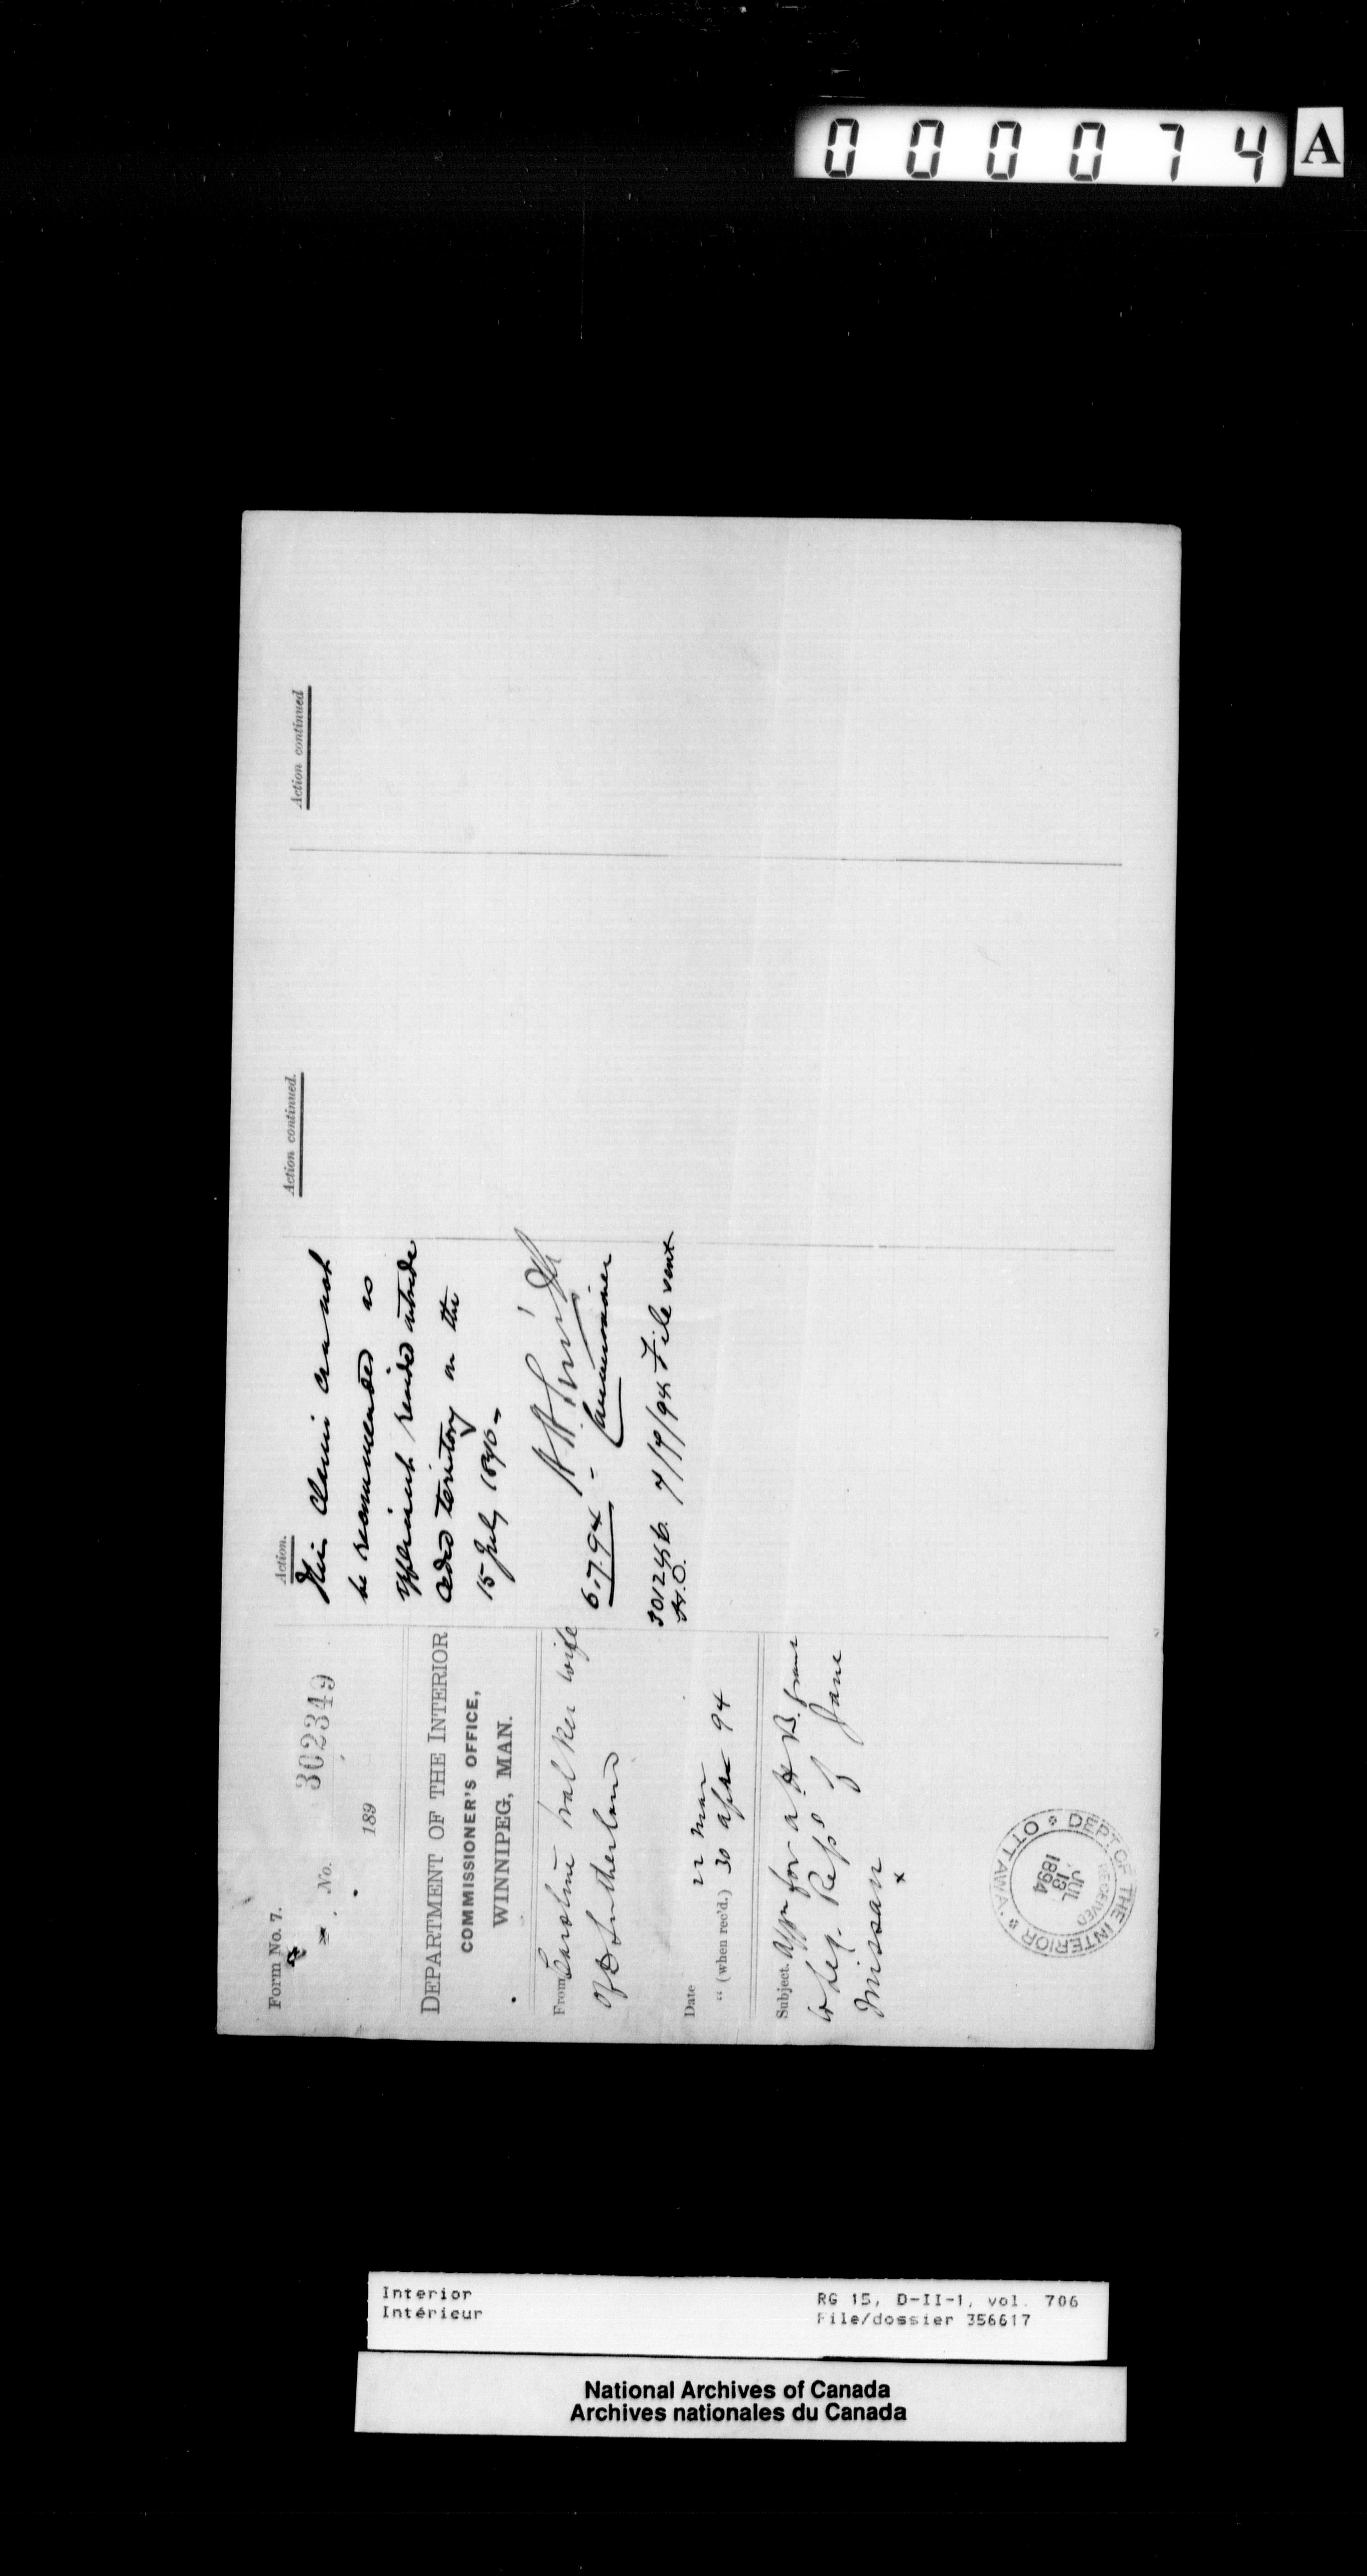 000074 A
Form No. 7.
No. 302349
189
DEPARTMENT OF THE INTERIOR
COMMISSIONER'S OFFICE,
WINNIPEG, MAN.
From Caroline Walker wife
of D Sutherland
Date 22 Mar
" (when rec'd.) 30 Apr 94
Subject. Appn for a H B grant
to Leg. Reps of Jane
Missan
x
DEPT OF THE INTERIOR * OTTAWA. *
RECEIVED
JUL
13
1894
Action.
This claim can not
be recommended as
applicant resided outside
ceded territory on the
15 July 1870 -
6.7.94 - H H Smith
Commissioner
301245b. 7/7/94 File sent
Action continued.
Action continued
Interior
Intérieur
RG 15, D-II-1, vol. 706
File/dossier 356617
National Archives of Canada
Archives nationales du Canada